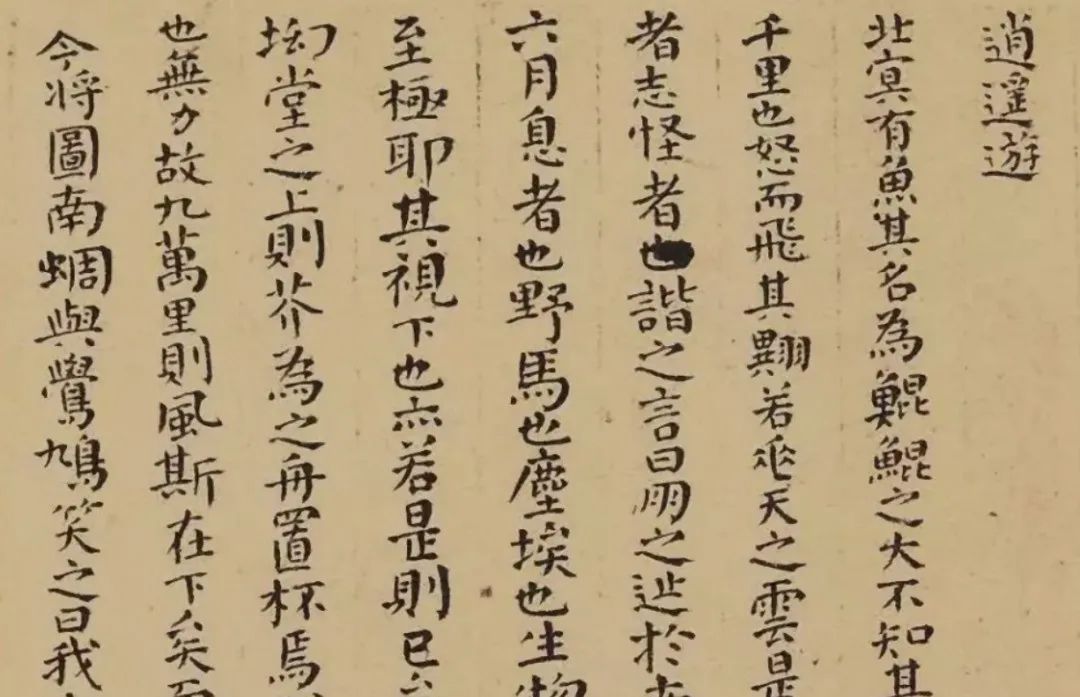 逍遥遊
北冥有魚其名為鯤鯤之大不知其
千里也怒而飛其翼若垂天之雲是
者志怪者也諧之言曰朋之迆於南
六月息者也野馬也塵埃也生物
至極耶其視下也亦若是則已
坳堂之上則芥為之舟置杯焉
也無力故九萬里則風斯在下矣而
今將圖南蜩與鷽鳩笑之曰我